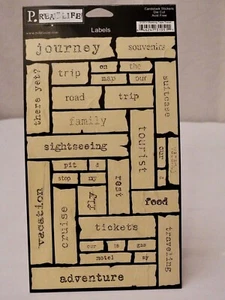 REAL LIFE
Labels
Cardstock Stickers
Die Cut
Acid Free
journey
souvenir
there yet?
trip
on
the
map
our
suitcase
road
trip
family
sightseeing
tourist
our
pit
a
stop
my
fly
rest
vacation
cruise
food
tickets
traveling
car
gas
motel
adventure